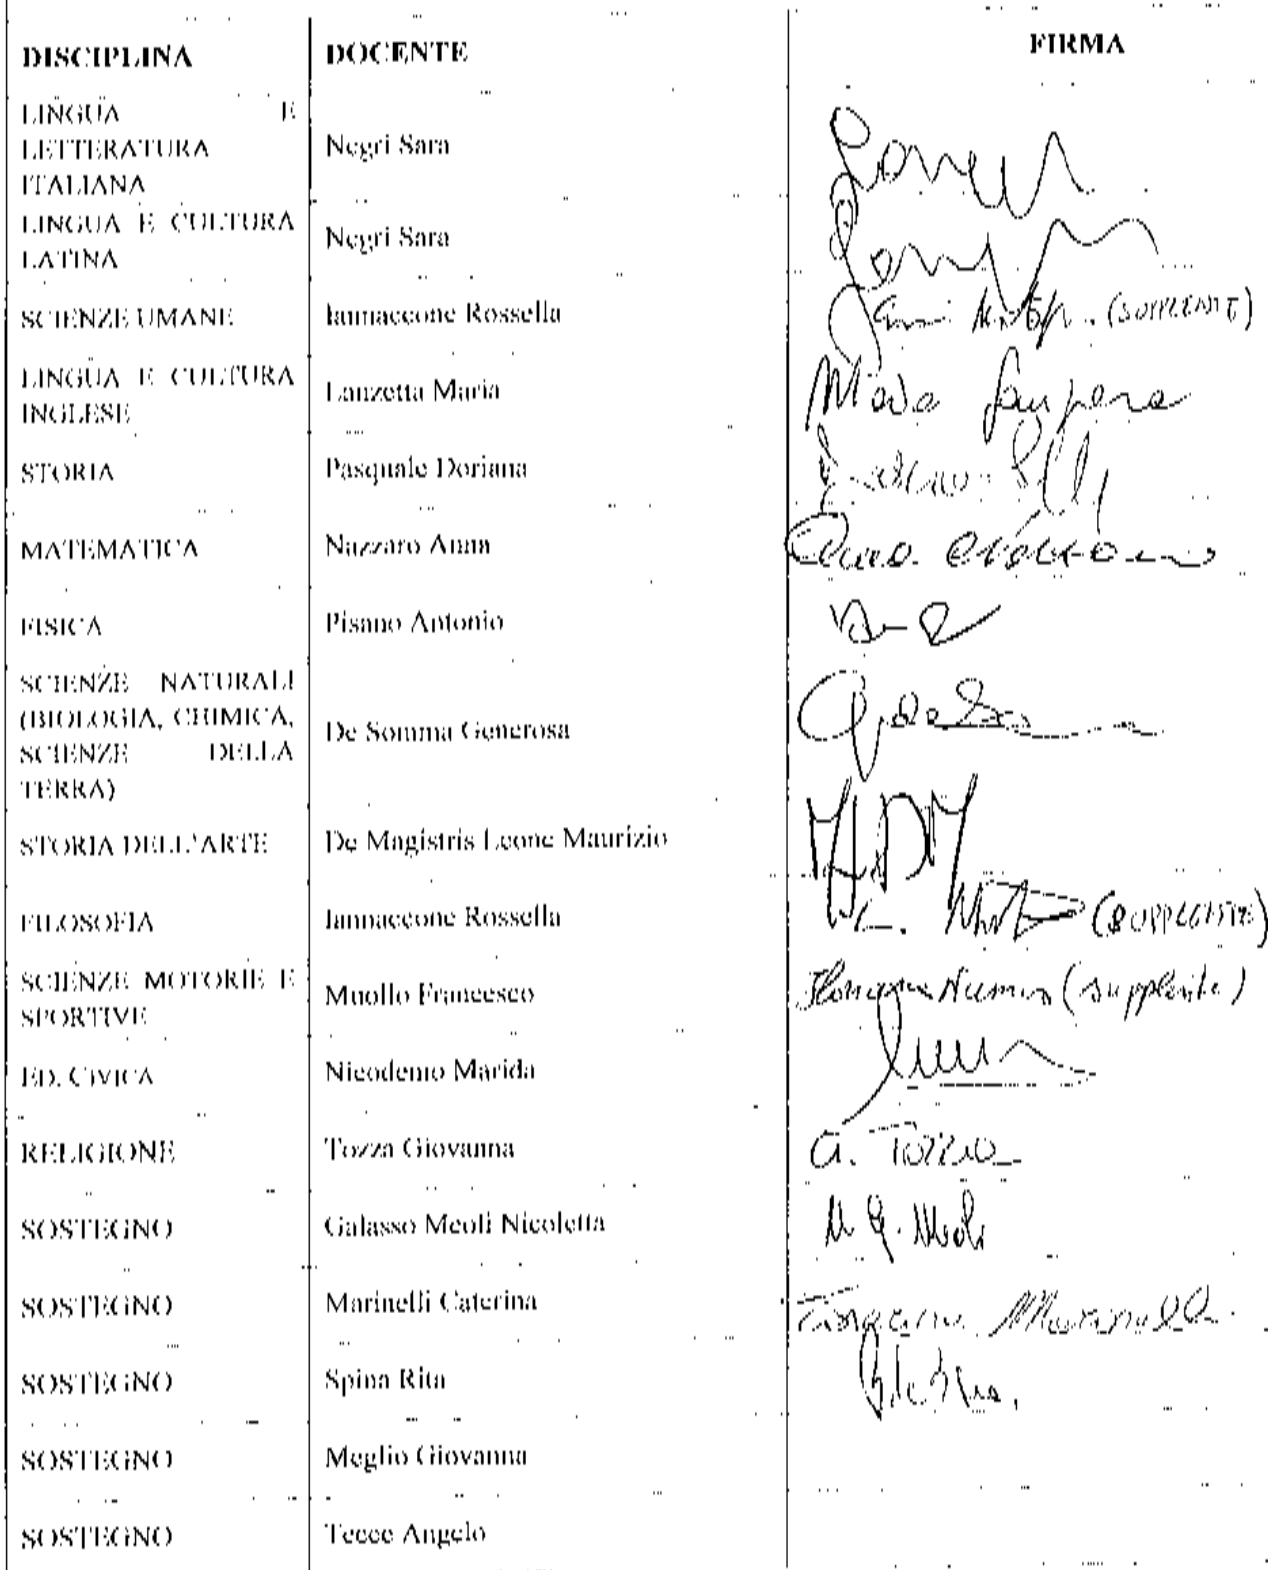 DISCIPLINA DOCENTE FIRMA
LINGUA E
LETTERATURA Negri Sara
ITALIANA
LINGUA E CULTURA
LATINA Negri Sara
SCIENZE UMANE Iannaccone Rossella (SUPPLENTE)
LINGUA E CULTURA
INGLESE Lanzetta Maria Maria
STORIA Pasquale Doriana
MATEMATICA Nazzaro Anna
FISICA Pisano Antonio
SCIENZE NATURALI
(BIOLOGIA, CHIMICA,
SCIENZE DELLA De Somma Generosa
TERRA)
STORIA DELL'ARTE De Magistris Leone Maurizio
FILOSOFIA Iannaccone Rossella (SUPPLENTE)
SCIENZE MOTORIE E
SPORTIVE Muollo Francesco (supplente)
ED. CIVICA Nicodemo Marida
RELIGIONE Tozza Giovanna G. Tozza
SOSTEGNO Galasso Meoli Nicoletta N. G. Meoli
SOSTEGNO Marinelli Caterina Marinelli
SOSTEGNO Spina Rita
SOSTEGNO Meglio Giovanna
SOSTEGNO Tecce Angelo